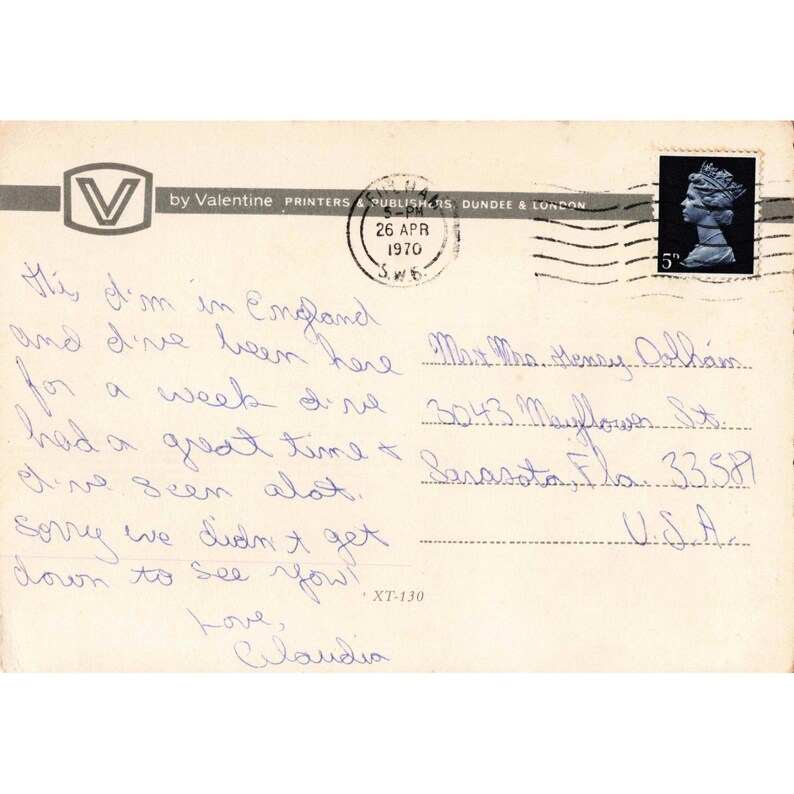 V
by Valentine PRINTERS & PUBLISHERS, DUNDEE & LONDON
FULHAM
5-PM
26 APR
1970
S.W.6
5D
Hi, I'm in England
and I've been here
for a week I've
had a great time &
I've seen alot.
Sorry we didn't get
down to see you!
Love,
Claudia
Mr. & Mrs. Henry Dolham
3043 Mayflower St.
Sarasota, Fla. 33581
U.S.A.
XT-130